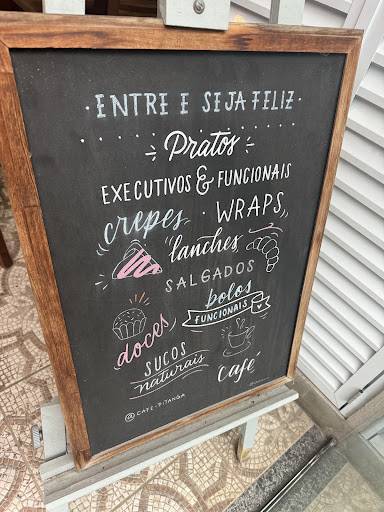 · ENTRE E SEJA FELIZ ·
Pratos
EXECUTIVOS & FUNCIONAIS
crepes · WRAPS,
lanches
SALGADOS
bolos
FUNCIONAIS
doces
SUCOS
naturais
café
@CAFE.PITANGA